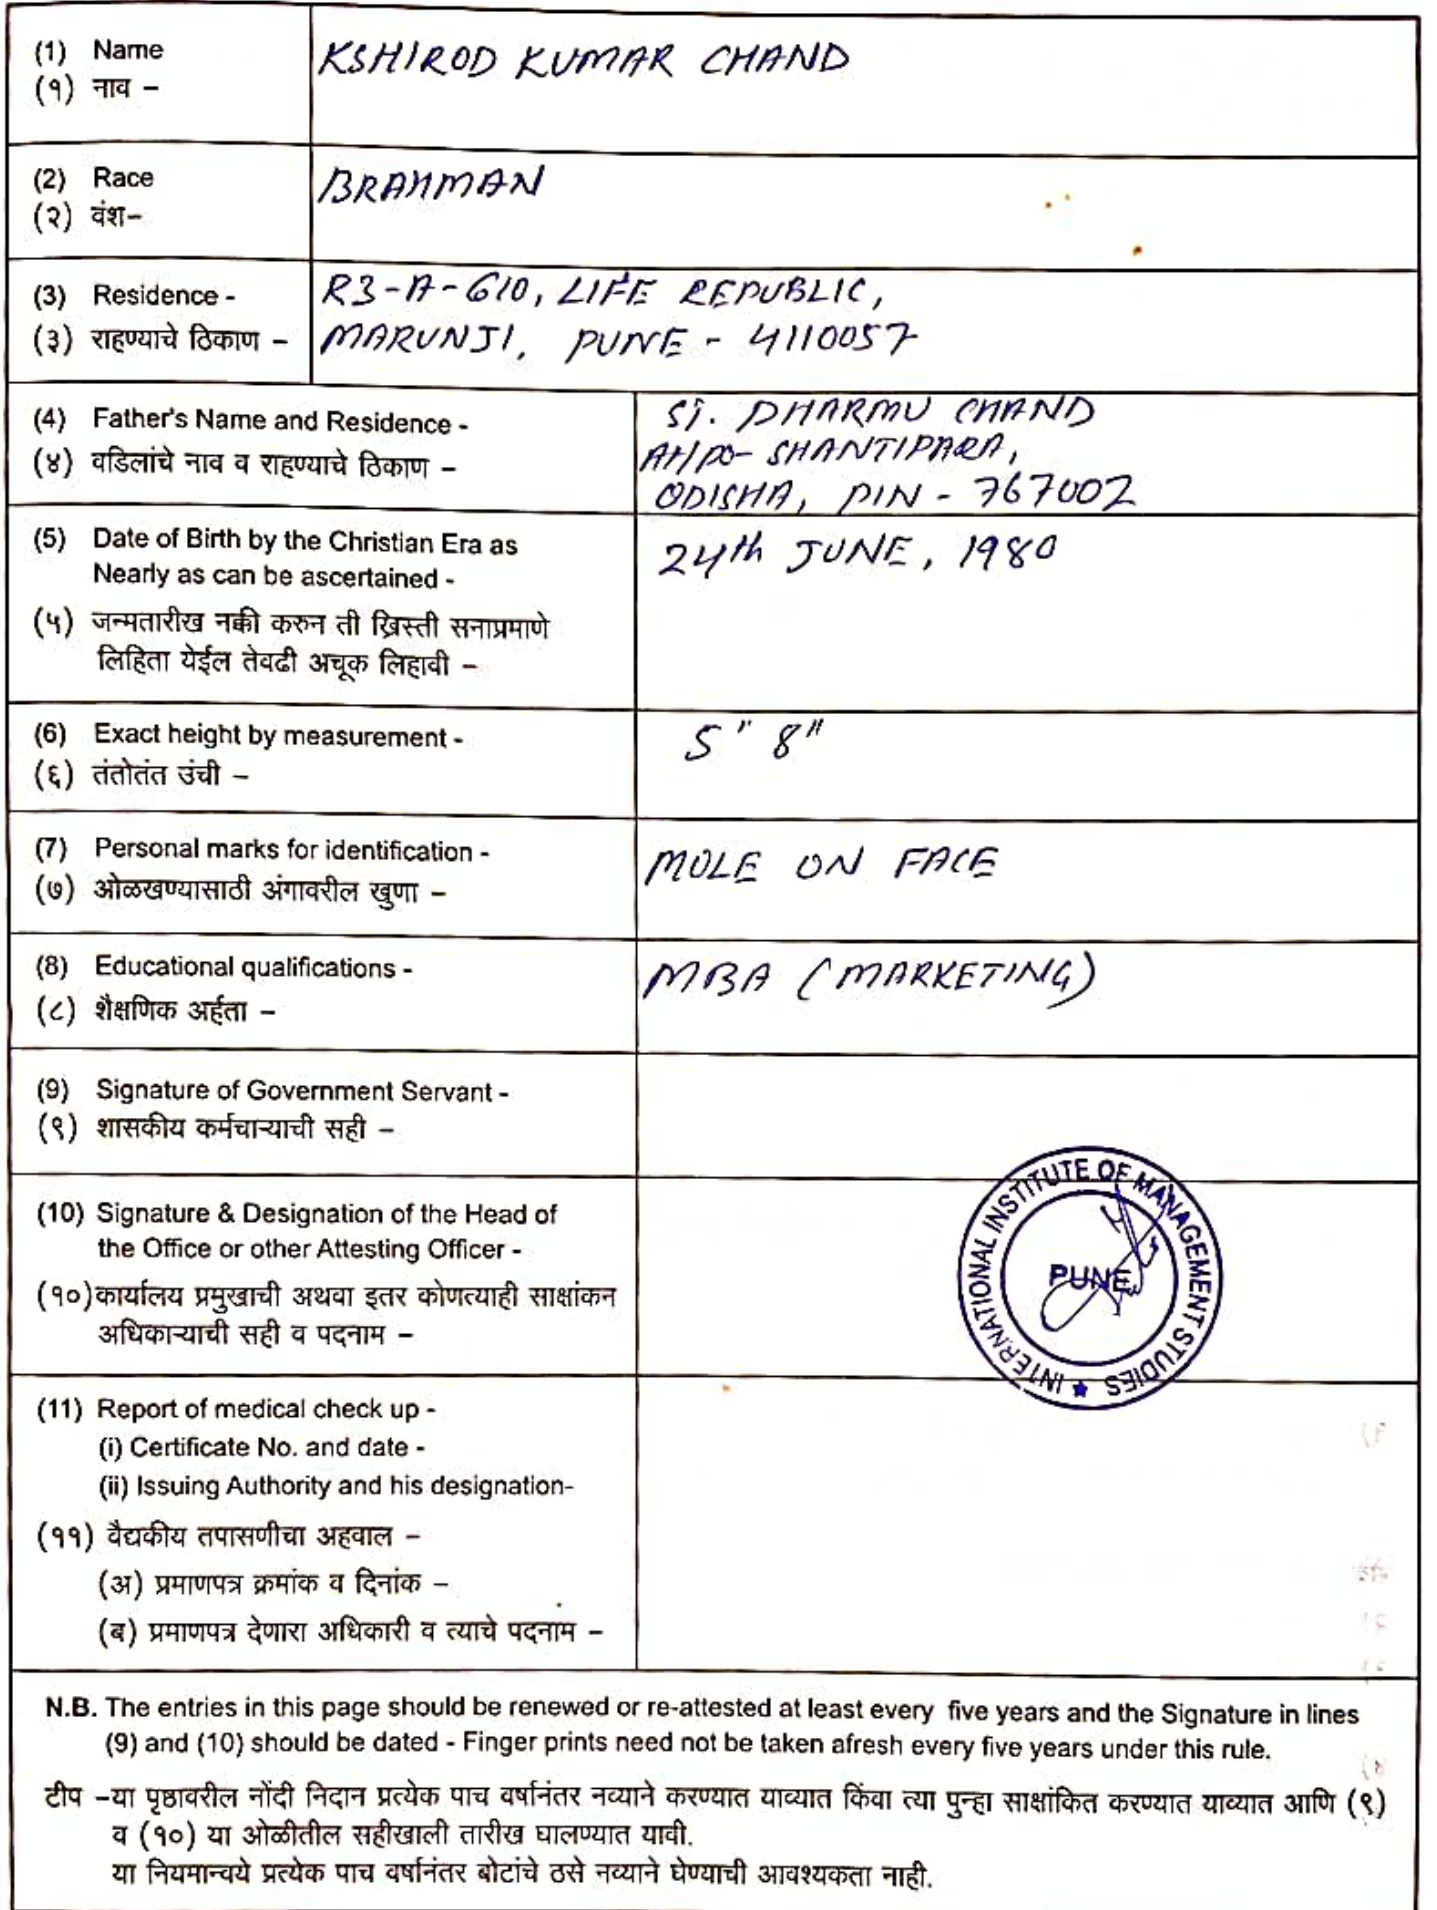 (1) Name
(१) नाव –
KSHIROD KUMAR CHAND
(2) Race
(२) वंश–
BRAHMAN
(3) Residence -
(३) राहण्याचे ठिकाण –
R3-A-610, LIFE REPUBLIC,
MARUNJI, PUNE - 4110057
(4) Father's Name and Residence -
(४) वडिलांचे नाव व राहण्याचे ठिकाण –
DHARMU CHAND
At/po- SHANTIPARA,
ODISHA, PIN - 767002
(5) Date of Birth by the Christian Era as
Nearly as can be ascertained -
(५) जन्मतारीख नक्की करुन ती ख्रिस्ती सनाप्रमाणे
लिहिता येईल तेवढी अचूक लिहावी –
24th JUNE, 1980
(6) Exact height by measurement -
(६) तंतोतंत उंची –
5" 8"
(7) Personal marks for identification -
(७) ओळखण्यासाठी अंगावरील खुणा –
MOLE ON FACE
(8) Educational qualifications -
(८) शैक्षणिक अर्हता –
MBA (MARKETING)
(9) Signature of Government Servant -
(९) शासकीय कर्मचाऱ्याची सही –
(10) Signature & Designation of the Head of
the Office or other Attesting Officer -
(१०) कार्यालय प्रमुखाची अथवा इतर कोणत्याही साक्षांकन
अधिकाऱ्याची सही व पदनाम –
INTERNATIONAL INSTITUTE OF MANAGEMENT STUDIES ★
PUNE
(11) Report of medical check up -
(i) Certificate No. and date -
(ii) Issuing Authority and his designation-
(११) वैद्यकीय तपासणीचा अहवाल –
(अ) प्रमाणपत्र क्रमांक व दिनांक –
(ब) प्रमाणपत्र देणारा अधिकारी व त्याचे पदनाम –
N.B. The entries in this page should be renewed or re-attested at least every five years and the Signature in lines
(9) and (10) should be dated - Finger prints need not be taken afresh every five years under this rule.
टीप –या पृष्ठावरील नोंदी निदान प्रत्येक पाच वर्षानंतर नव्याने करण्यात याव्यात किंवा त्या पुन्हा साक्षांकित करण्यात याव्यात आणि (९)
व (१०) या ओळीतील सहीखाली तारीख घालण्यात यावी.
या नियमान्वये प्रत्येक पाच वर्षानंतर बोटांचे ठसे नव्याने घेण्याची आवश्यकता नाही.